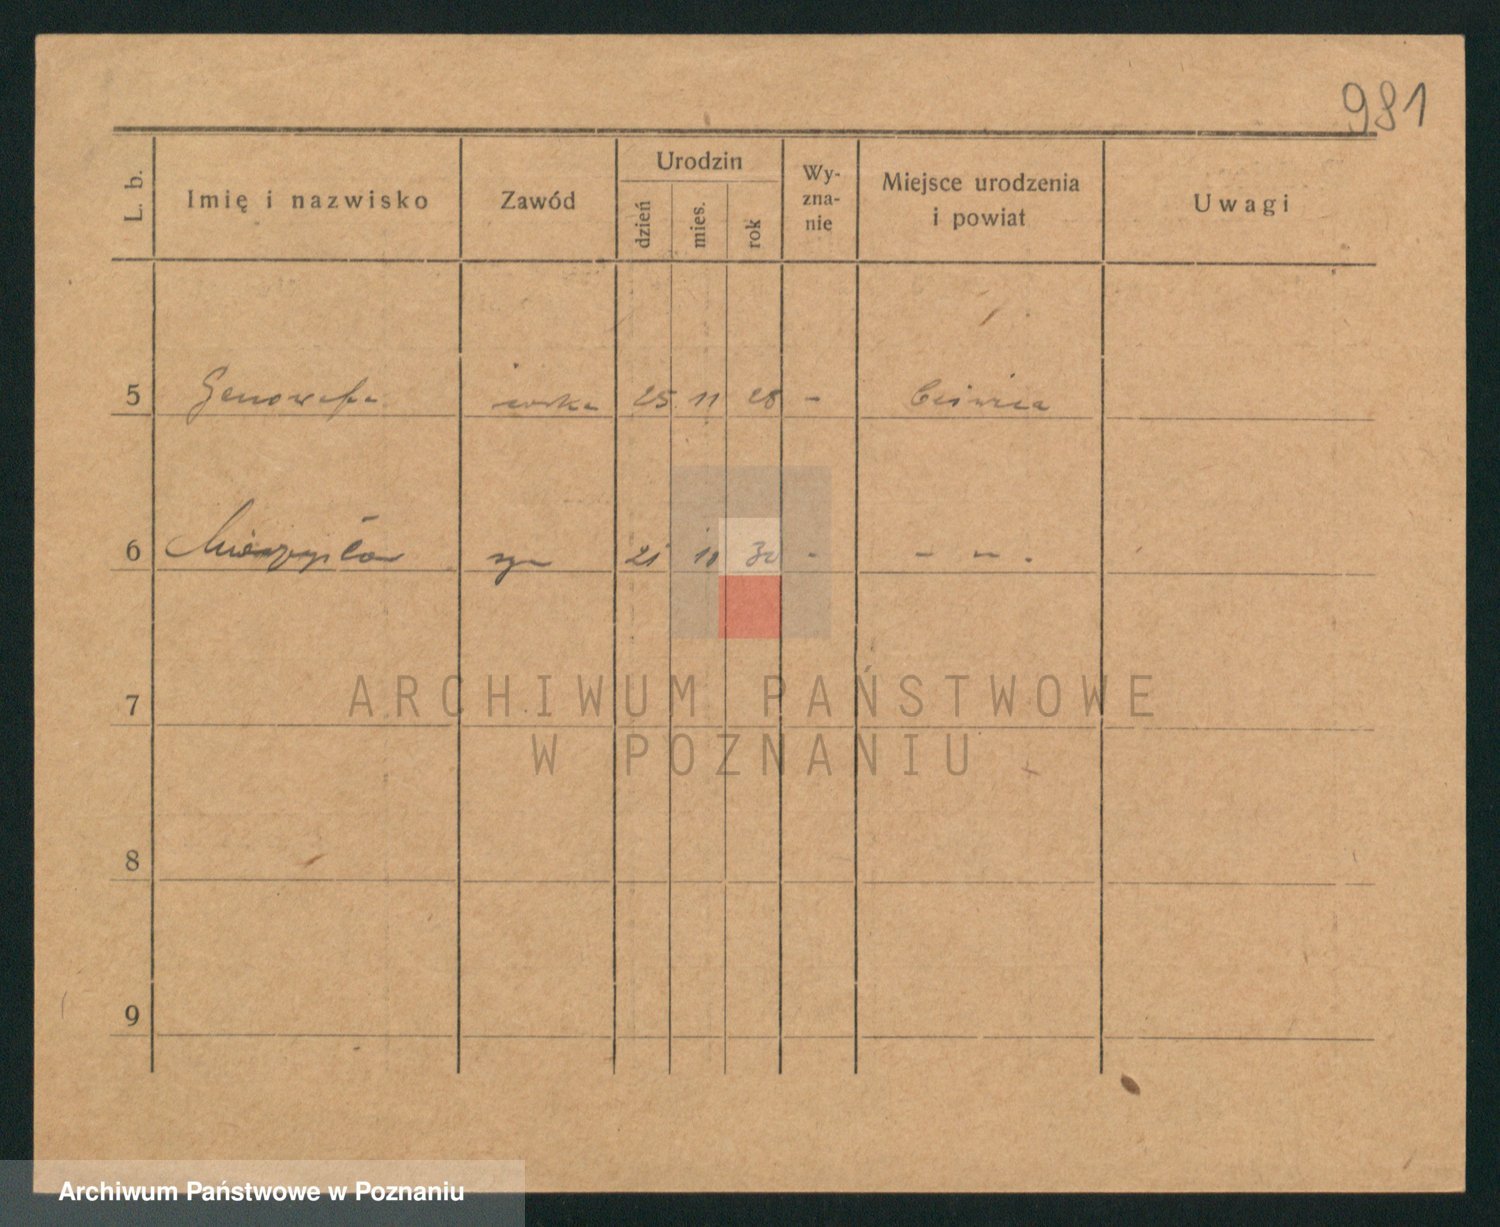 981
L. b. Imię i nazwisko Zawód Urodzin dzień mies. rok Wy- zna- nie Miejsce urodzenia i powiat Uwagi
5 Genowefa córka 25 11 28 -
6 Mieczysław syn 21 - - " - .
7
8
9
ARCHIWUM PAŃSTWOWE
W POZNANIU
Archiwum Państwowe w Poznaniu